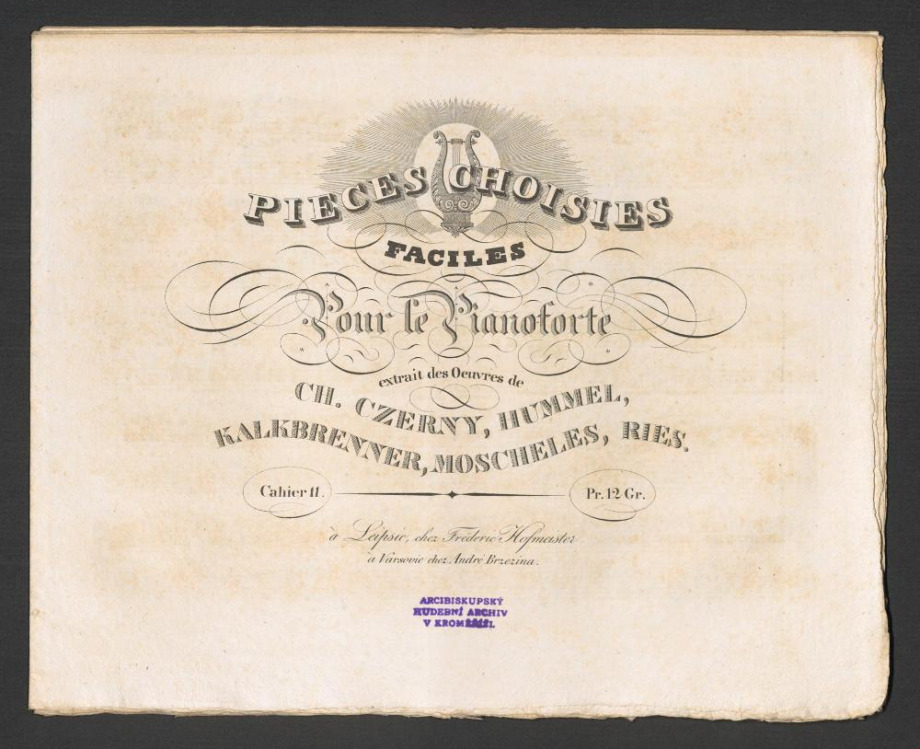 PIECES CHOISIES
FACILES
Pour le Pianoforte
extrait des Oeuvres de
CH. CZERNY, HUMMEL,
KALKBRENNER, MOSCHELES, RIES.
Cahier 11. Pr. 12 Gr.
à Leipsic, chez Fréderic Hofmeister
à Varsovie chez André Brzezina.
ARCIBISKUPSKÝ
HUDEBNÍ ARCHIV
V KROMĚŘÍŽI.